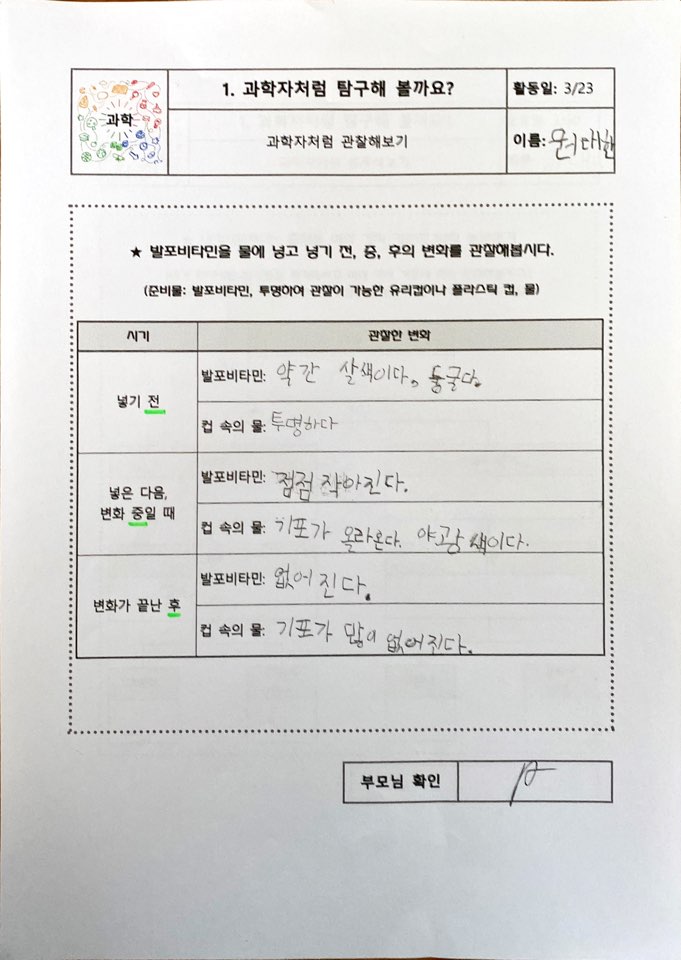 과학
1. 과학자처럼 탐구해 볼까요?
활동일: 3/23
과학자처럼 관찰해보기
이름: 대한
★ 발포비타민을 물에 넣고 넣기 전, 중, 후의 변화를 관찰해봅시다.
(준비물: 발포비타민, 투명하여 관찰이 가능한 유리컵이나 플라스틱 컵, 물)
시기
관찰한 변화
넣기 전
발포비타민: 약간 살색이다, 둥글다.
컵 속의 물: 투명하다
넣은 다음,
변화 중일 때
발포비타민: 점점 작아진다.
컵 속의 물: 기포가 올라온다. 야광색이다.
변화가 끝난 후
발포비타민: 없어진다.
컵 속의 물: 기포가 많이 없어진다.
부모님 확인